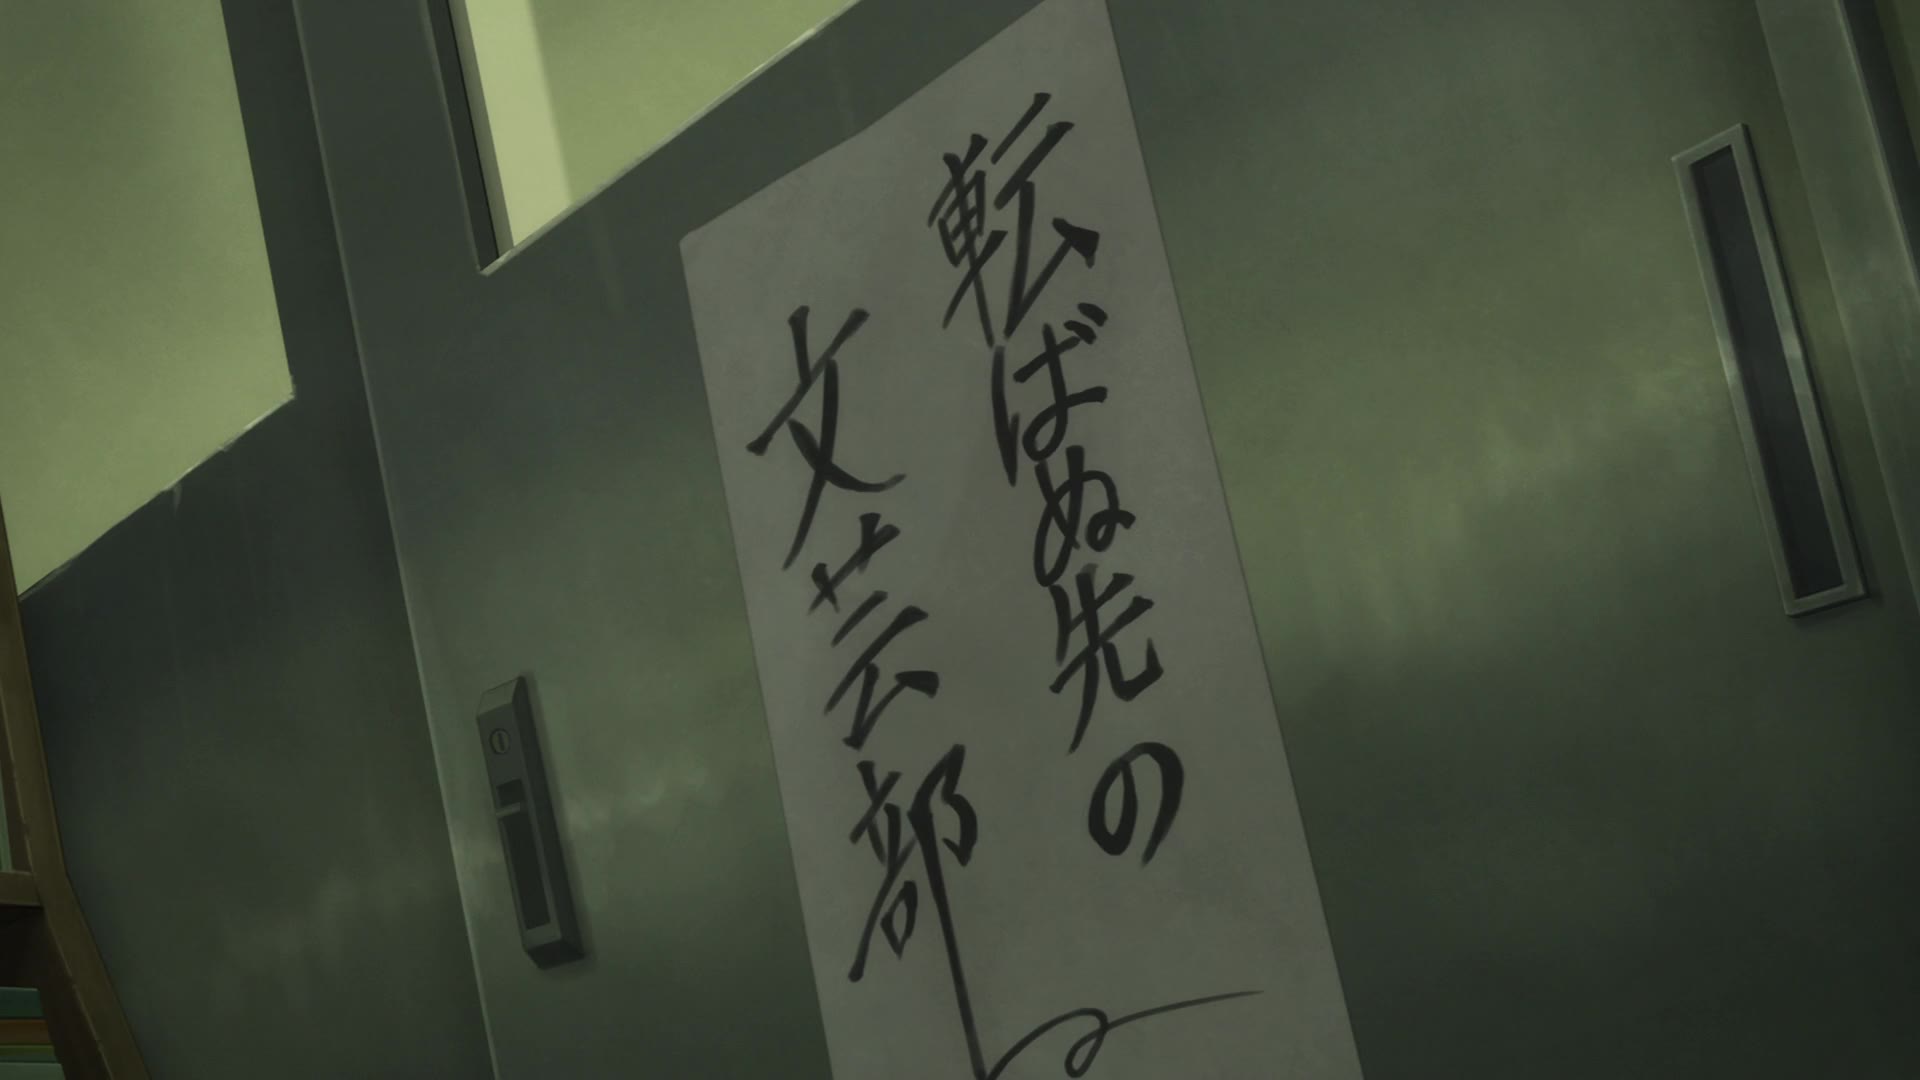 転ばぬ先の
文芸部